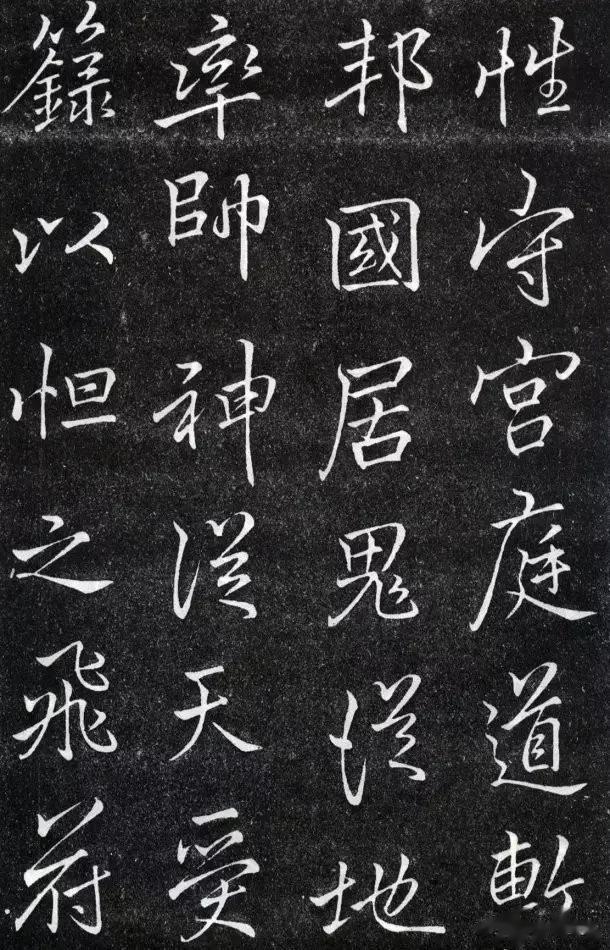 性守宮庭道斬
邦國居鬼從地
率帥神從天受
籙以怛之飛符